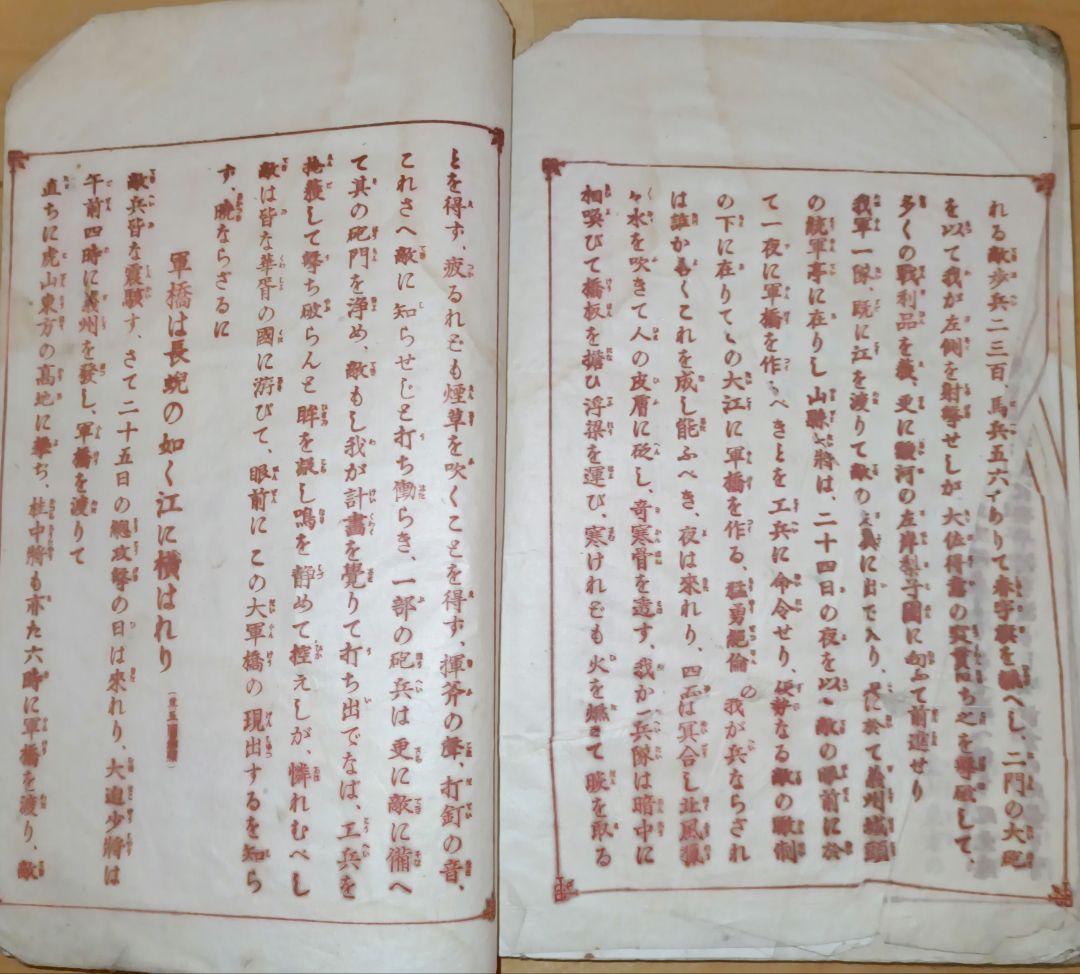 れる敵歩兵二三百、馬兵五六ありて赤字旗を飜へし、二門の大砲
を以て我が左側を射撃せしが、大佐得意の突貫ち之を撃破して、
多くの戰利品を獲、更に靉河の左岸梨子園に向て前進せり
我軍一隊、既に江を渡りて敵の出で入り、に於て義州城頭
の統軍亭に在りし山縣大將は、二十四日の夜を以て敵の眼前に於
て一夜に軍橋を作るべきことを工兵に命令せり、なる敵の
の下に在りてこの大江に軍橋を作る、猛勇絕倫の我が兵ならざれ
は誰か善くこれを成し能ふべき、夜は來れり、四面は冥合し北風獵
々水を吹きて人の皮膚に砭し、奇寒骨を透す、我か工兵隊は暗中に
相喚びて橋板を擔ひ浮梁を運び、寒けれども火を燃きて暖を取る
ことを得す、疲るれども煙草を吹くことを得す、揮斧の聲、打釘の音、
これさへ敵に知らせじと打ち働らき、一部の砲兵は更に敵に備へ
て其の砲門を淨め、敵もし我が計畫を覺りて打ち出でなば、工兵を
掩護して擊ち破らんと眸を凝し鳴を靜めて控えしが、憐れむべし
敵は皆な華胥の國に游びて、眼前にこの大軍橋の現出するを知ら
す、曉ならざるに
軍橋は長蛇の如く江に橫はれり
敵兵皆な震駭す、さて二十五日の總攻擊の日は來れり、大迫少將は
午前四時に義州を發し、軍橋を渡りて
直ちに虎山東方の高地に攀ぢ、桂中將も亦た六時に軍橋を渡り、敵